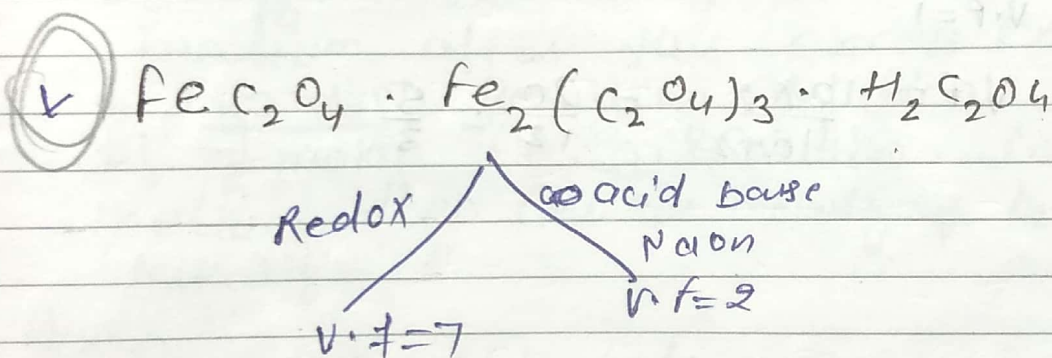 v FeC₂O₄ · Fe₂(C₂O₄)₃ · H₂C₂O₄
Redox acid base
NaOH
v.f=7 v.f=2
V.f=1